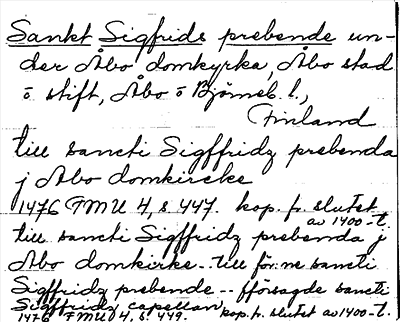 Sankt Sigfrids prebende un-
der Åbo domkyrka, Åbo stad
o stift, Åbo o Björneb. l.,
Finland
till sancti Sigffridz prebenda
j Åbo domkircke
1476 FMU 4, s. 447. kop. fr. slutet
av 1400-t.
till sancti Sigffridz prebenda j
Åbo domkirke.. till för:ne sancti
Sigffridz prebende.. fförsagde sancti
Sigffridz capellan
1476 FMU 4, s. 449. kop. fr. slutet av 1400-t.